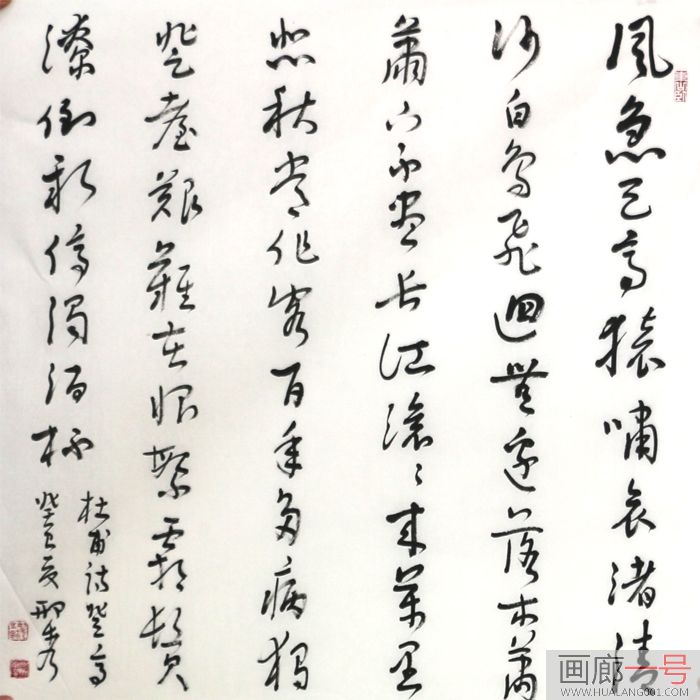 風急天高猿嘯哀渚清
沙白鳥飛迴無邊落木蕭
蕭下不盡長江滾〻來萬里
悲秋常作客百年多病獨
登臺艱難苦恨繁霜鬢
潦倒新停濁酒杯
杜甫詩登高
癸夏邢秀
画廊一号
WWW.HUALANG001.COM